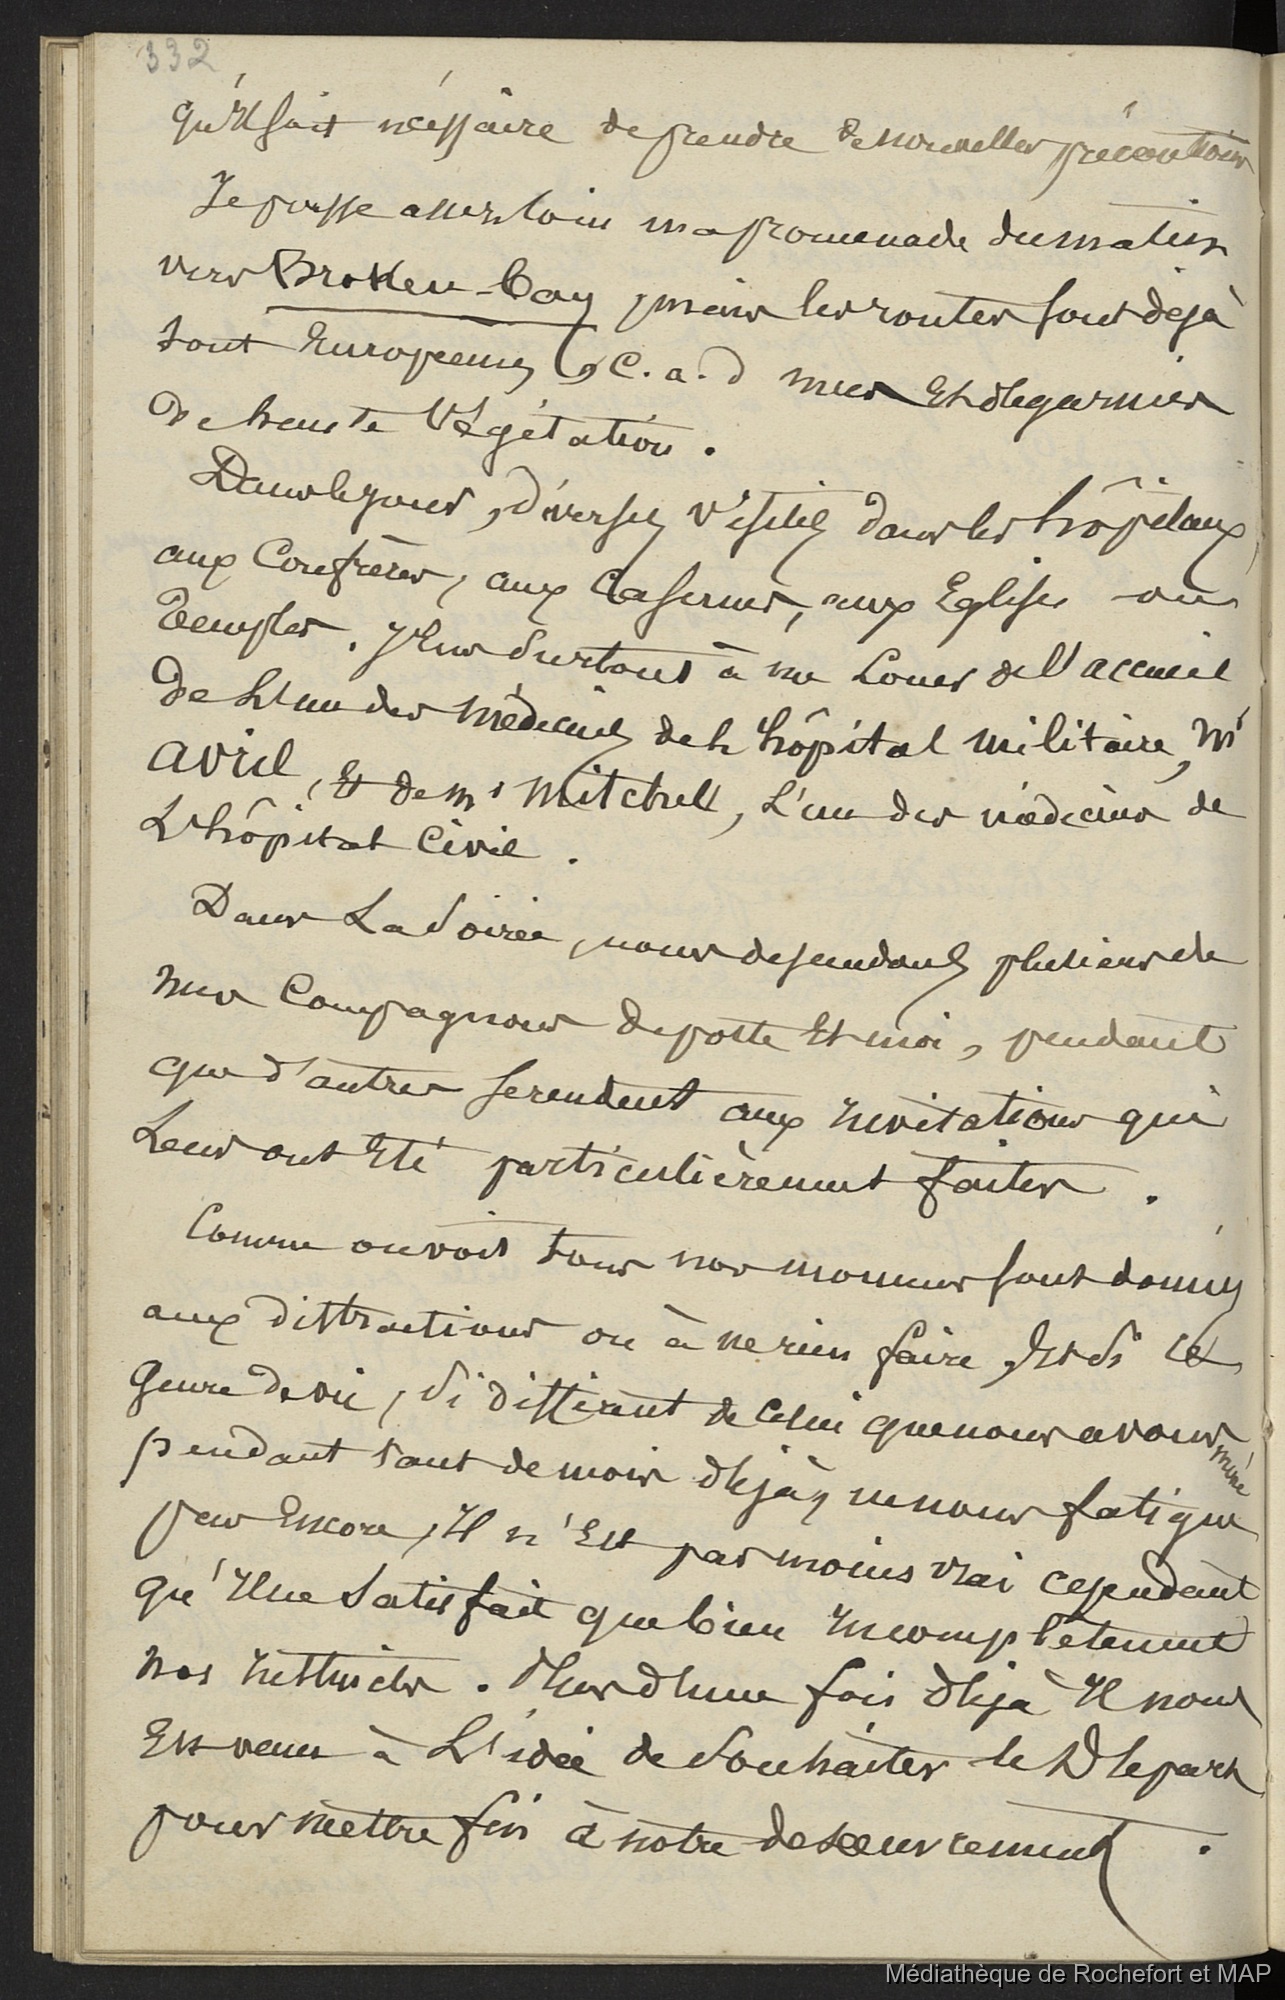 332
qu'il soit nécessaire de prendre de nouvelles précautions
Je pousse assez loin ma promenade du matin
vers Broken-Bay, mais les routes sont déjà
tout Européennes, C.a.d nues Et dégarnies
de haute Végétation.
Dans le jour, diverses visites dans les hôpitaux,
aux Confrères, aux Casernes, aux Eglises ou
Temples. J'eus surtout à me Louer de l'accueil
de L'un des médecins de L'hôpital militaire, Mr
avril, Et de Mr Mitchell, L'un des médecins de
L'hôpital Civil.
Dans La Soirée, nous descendons plusieurs de
mes Compagnons de poste Et moi, pendant
que d'autres se rendent aux Invitations qui
Leur ont Eté particulièrement faites.
Comme on voit tous nos momens sont donnés
aux distractions ou à ne rien faire, Et si ce
Genre de vie, si différent de Celui que nous avons mené
pendant tant de mois déjà, ne nous fatigue
pas Encore, Il n'Est pas moins vrai cependant
qu'Il ne Satisfait que bien Incomplètement
nos Instincts. Plus d'une fois déjà Il nous
Est venu à L'idée de Souhaiter le Départ
pour mettre fin à notre désœuvrement.
Médiathèque de Rochefort et MAP